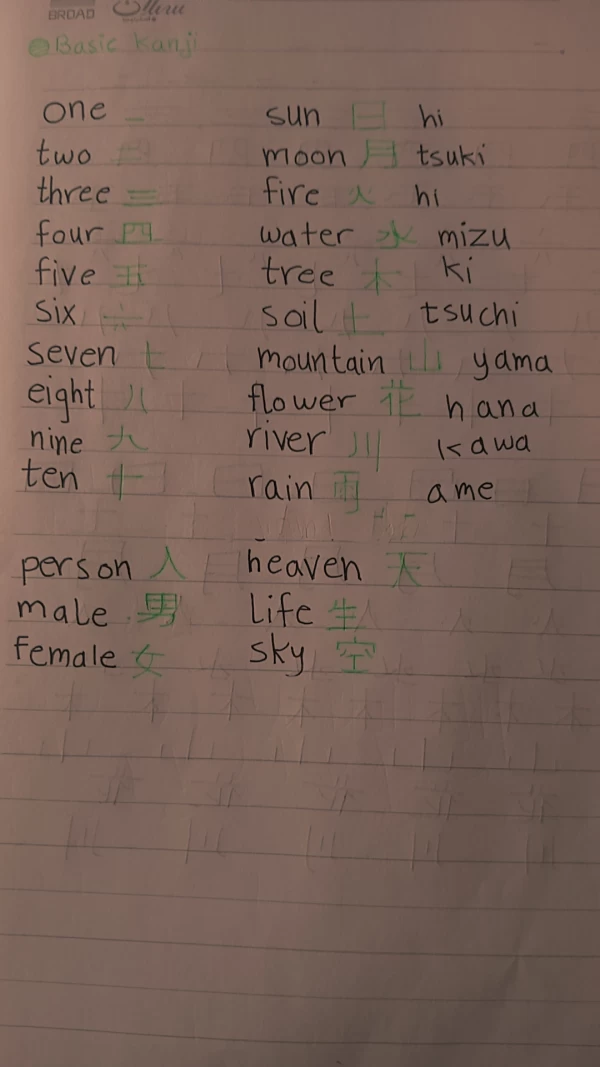 BROAD
Basic Kanji
one 一 sun 日 hi
two moon 月 tsuki
three 三 fire 火 hi
four 四 water 水 mizu
five 五 tree 木 ki
six 六 soil 土 tsuchi
seven 七 mountain 山 yama
eight 八 flower 花 hana
nine 九 river 川 kawa
ten 十 rain 雨 ame
person 人 heaven 天
male 男 life 生
female 女 sky 空